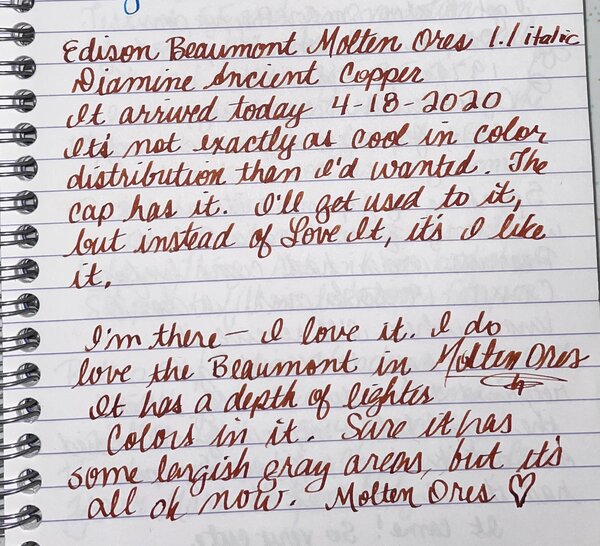 Edison Beaumont Molten Ores 1.1 italic
Diamine Ancient Copper
It arrived today 4-18-2020
It's not exactly as cool in color
distribution than I'd wanted. The
cap has it. I'll get used to it,
but instead of Love It, it's I like
it.
I'm there — I love it. I do
love the Beaumont in Molten Ores
It has a depth of lighter
colors in it. Sure it has
some largish gray areas, but it's
all ok now. Molten Ores ♡